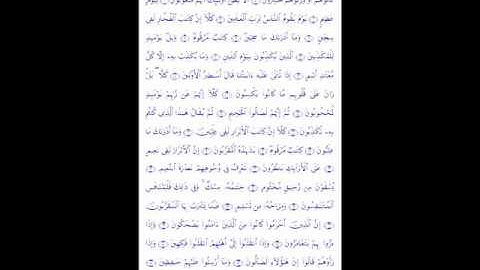 كالوهم أو وزنوهم يخسرون ۝ ألا يظن أولئك أنهم مبعوثون ۝ ليوم
عظيم ۝ يوم يقوم ٱلناس لرب ٱلعالمين ۝ كلا إن كتـب ٱلفجار لفى
سجين ۝ وما أدرىك ما سجين ۝ كتـب مرقوم ۝ ويل يومئذ
للمكذبين ۝ ٱلذين يكذبون بيوم ٱلدين ۝ وما يكذب به إلا كل
معتد أثيم ۝ إذا تتلى عليه ءايـتنا قال أسـطير ٱلأولين ۝ كلا بل
ران على قلوبهم ما كانوا يكسبون ۝ كلا إنهم عن ربهم يومئذ
لمحجوبون ۝ ثم إنهم لصالوا ٱلجحيم ۝ ثم يقال هـذا ٱلذى كنتم
به تكذبون ۝ كلا إن كتـب ٱلأبرار لفى عليين ۝ وما أدرىك ما
عليون ۝ كتـب مرقوم ۝ يشهده ٱلمقربون ۝ إن ٱلأبرار لفى نعيم
۝ على ٱلأرائك ينظرون ۝ تعرف فى وجوههم نضرة ٱلنعيم ۝
يسقون من رحيق مختوم ۝ ختـمه مسك وفى ذلك فليتنافس
ٱلمتنـفسون ۝ ومزاجه من تسنيم ۝ عينا يشرب بها ٱلمقربون
۝ إن ٱلذين أجرموا كانوا من ٱلذين ءامنوا يضحكون ۝ وإذا
مروا بهم يتغامزون ۝ وإذا ٱنقلبوا إلى أهلهم ٱنقلبوا فكهين ۝ وإذا
رأوهم قالوا إن هـؤلاء لضالون ۝ وما أرسلوا عليهم حـفظين ۝